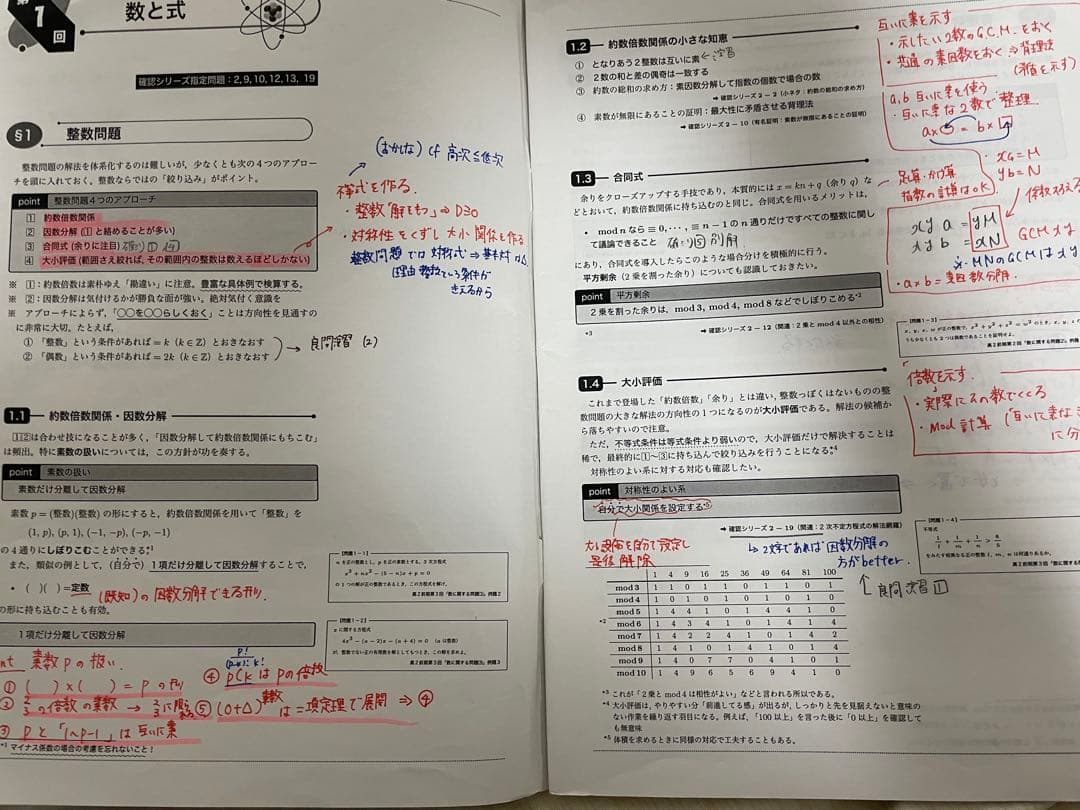 第1回
数と式
確認シリーズ指定問題：2, 9, 10, 12, 13, 19
§1 整数問題
整数問題の解法を体系化するのは難しいが，少なくとも次の4つのアプロー
チを頭に入れておく．整数ならではの「絞り込み」がポイント．
point 整数問題4つのアプローチ
1 約数倍数関係
2 因数分解 (1と絡めることが多い)
3 合同式 (余りに注目)
4 大小評価 (範囲さえ絞れば，その範囲内の整数は数えるほどしかない)
※ 1：約数倍数は素朴ゆえ「勘違い」に注意．豊富な具体例で検算する．
※ 2：因数分解は気付けるかが勝負な面が強い．絶対気付く意識を
※ アプローチによらず，「○○を○○らしくおく」ことは方向性を見通すの
に非常に大切．たとえば，
① 「整数」という条件があれば = k (k∈Z) とおきなおす
② 「偶数」という条件があれば = 2k (k∈Z) とおきなおす
→ 良問演習 (2)
(おかしな) cf 高次≦低次
不等式を作る．
・整数解をもつ ⇒ D≧0
・対称性をくずし 大小関係を作る
整数問題では対称式⇒基本対称
1.1 約数倍数関係・因数分解
1 2は合わせ技になることが多く，「因数分解して約数倍数関係にもちこむ」
は頻出．特に素数の扱いについては，この方針が功を奏する．
point 素数の扱い
素数だけ分離して因数分解
素数 p = (整数)(整数) の形にすると，約数倍数関係を用いて「整数」を
(1, p), (p, 1), (−1, −p), (−p, −1)
の4通りにしぼりこむことができる．*1
また，類似の例として，(自分で) 1項だけ分離して因数分解することで，
• (　)(　) =定数 (既知)の因数分解できる形．
の形に持ち込むことも有効．
1項だけ分離して因数分解
【問題1−1】
n を正の整数とし，p を正の素数とする．3次方程式
の1つの解が正の整数であるとき，この方程式を解け．
高2前期第3回『数に関する問題3』例題2
【問題1−2】
x に関する方程式
4x³ − (a − 2)x − (a + 4) = 0 (a は整数)
が，整数でない正の有理数を解としてもつとき，この解を求めよ．
高2前期第3回『数に関する問題3』例題3
素数Pの扱い．
① (　)×(　) = P の形
③ Pと「1〜P−1」は互いに素
④ pCk はPの倍数
⑤ (○+△)素数 は二項定理で展開 ⇒ ④
*1 マイナス係数の場合の考慮を忘れないこと！
1.2 約数倍数関係の小さな知恵
① となりあう2整数は互いに素 ←演習
② 2数の和と差の偶奇は一致する
③ 約数の総和の求め方：素因数分解して指数の個数で場合の数
➡ 確認シリーズ2−2 (小ネタ：約数の総和の求め方)
④ 素数が無限にあることの証明：最大性に矛盾させる背理法
➡ 確認シリーズ2−10 (有名証明：素数が無限にあることの証明)
互いに素を示す
・示したい2数のG.C.M.をおく
・共通の素因数をおく ⇒ 背理法
(矛盾を示す)
a,b 互いに素を使う
・互いに素な2数で整理
a×○ = b×□
1.3 合同式
余りをクローズアップする手技であり，本質的には x = kn + q (余り q) な
どとおいて，約数倍数関係に持ち込むのと同じ．合同式を用いるメリットは，
• mod n なら ≡ 0, ⋯, ≡ n − 1 の n 通りだけですべての整数に関し
て議論できること
にあり，合同式を導入したらこのような場合分けを積極的に行う．
平方剰余 (2乗を割った余り) についても認識しておきたい．
point 平方剰余
2乗を割った余りは，mod 3, mod 4, mod 8 などでしぼりこめる*2
*3
➡ 確認シリーズ2−12 (関連：2乗と mod 4 以外との相性)
足算・かけ算
指数の計算はOK
xa = M
yb = N
xya = yM
xyb = xN
【問題1−3】
高2前期第2回『数に関する問題2』例題
1.4 大小評価
これまで登場した「約数倍数」「余り」とは違い，整数っぽくはないものの整
数問題の大きな解法の方向性の1つになるのが大小評価である．解法の候補か
ら落ちやすいので注意．
ただ，不等式条件は等式条件より弱いので，大小評価だけで解決することは
稀で，最終的に1〜3に持ち込んで絞り込みを行うことになる．*4
対称性のよい系に対する対応も確認したい．
point 対称性のよい系
自分で大小関係を設定する*5
➡ 確認シリーズ2−19 (関連：2次不定方程式の解法網羅)
大小関係を自分で設定し
最後解除
↳ 2文字であれば因数分解の
方がbetter．
↑ 良問演習 1
倍数を示す．
・実際にその数でくくる
・mod 計算
【問題1−4】
不等式
1/l + 1/m + 1/n > 4/5
をみたす相異なる正の整数 l, m, n は何通りあるか．
1 4 9 16 25 36 49 64 81 100
mod 3 1 1 0 1 1 0 1 1 0 1
mod 4 1 0 1 0 1 0 1 0 1 0
mod 5 1 4 4 1 0 1 4 4 1 0
*2 mod 6 1 4 3 4 1 0 1 4 3 4
mod 7 1 4 2 2 4 1 0 1 4 2
mod 8 1 4 1 0 1 4 1 0 1 4
mod 9 1 4 0 7 7 0 4 1 0 1
mod 10 1 4 9 6 5 6 9 4 1 0
*3 これが「2乗と mod 4 は相性がよい」などと言われる所以である．
*4 大小評価は，やりやすい分「前進してる感」が出るが，しっかりと先を見据えないと意味の
ない作業を繰り返す羽目になる．例えば，「100以上」を言った後に「0以上」を確認して
も無意味
*5 体積を求めるときに同様の対応で工夫することもある．